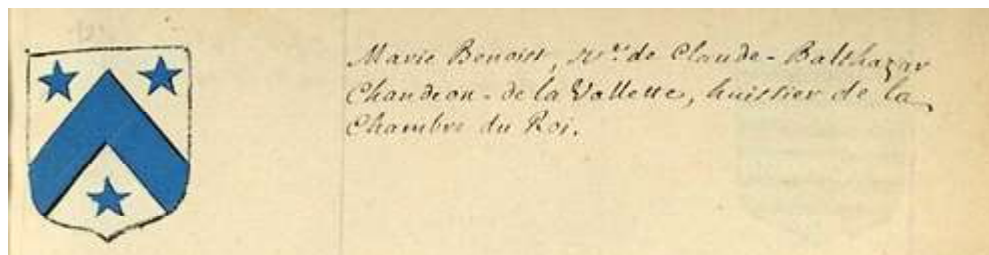 Marie Benoist, v.ve de Claude-Balthazar
Chandeon-de la Vallette, huissier de la
Chambre du Roi.